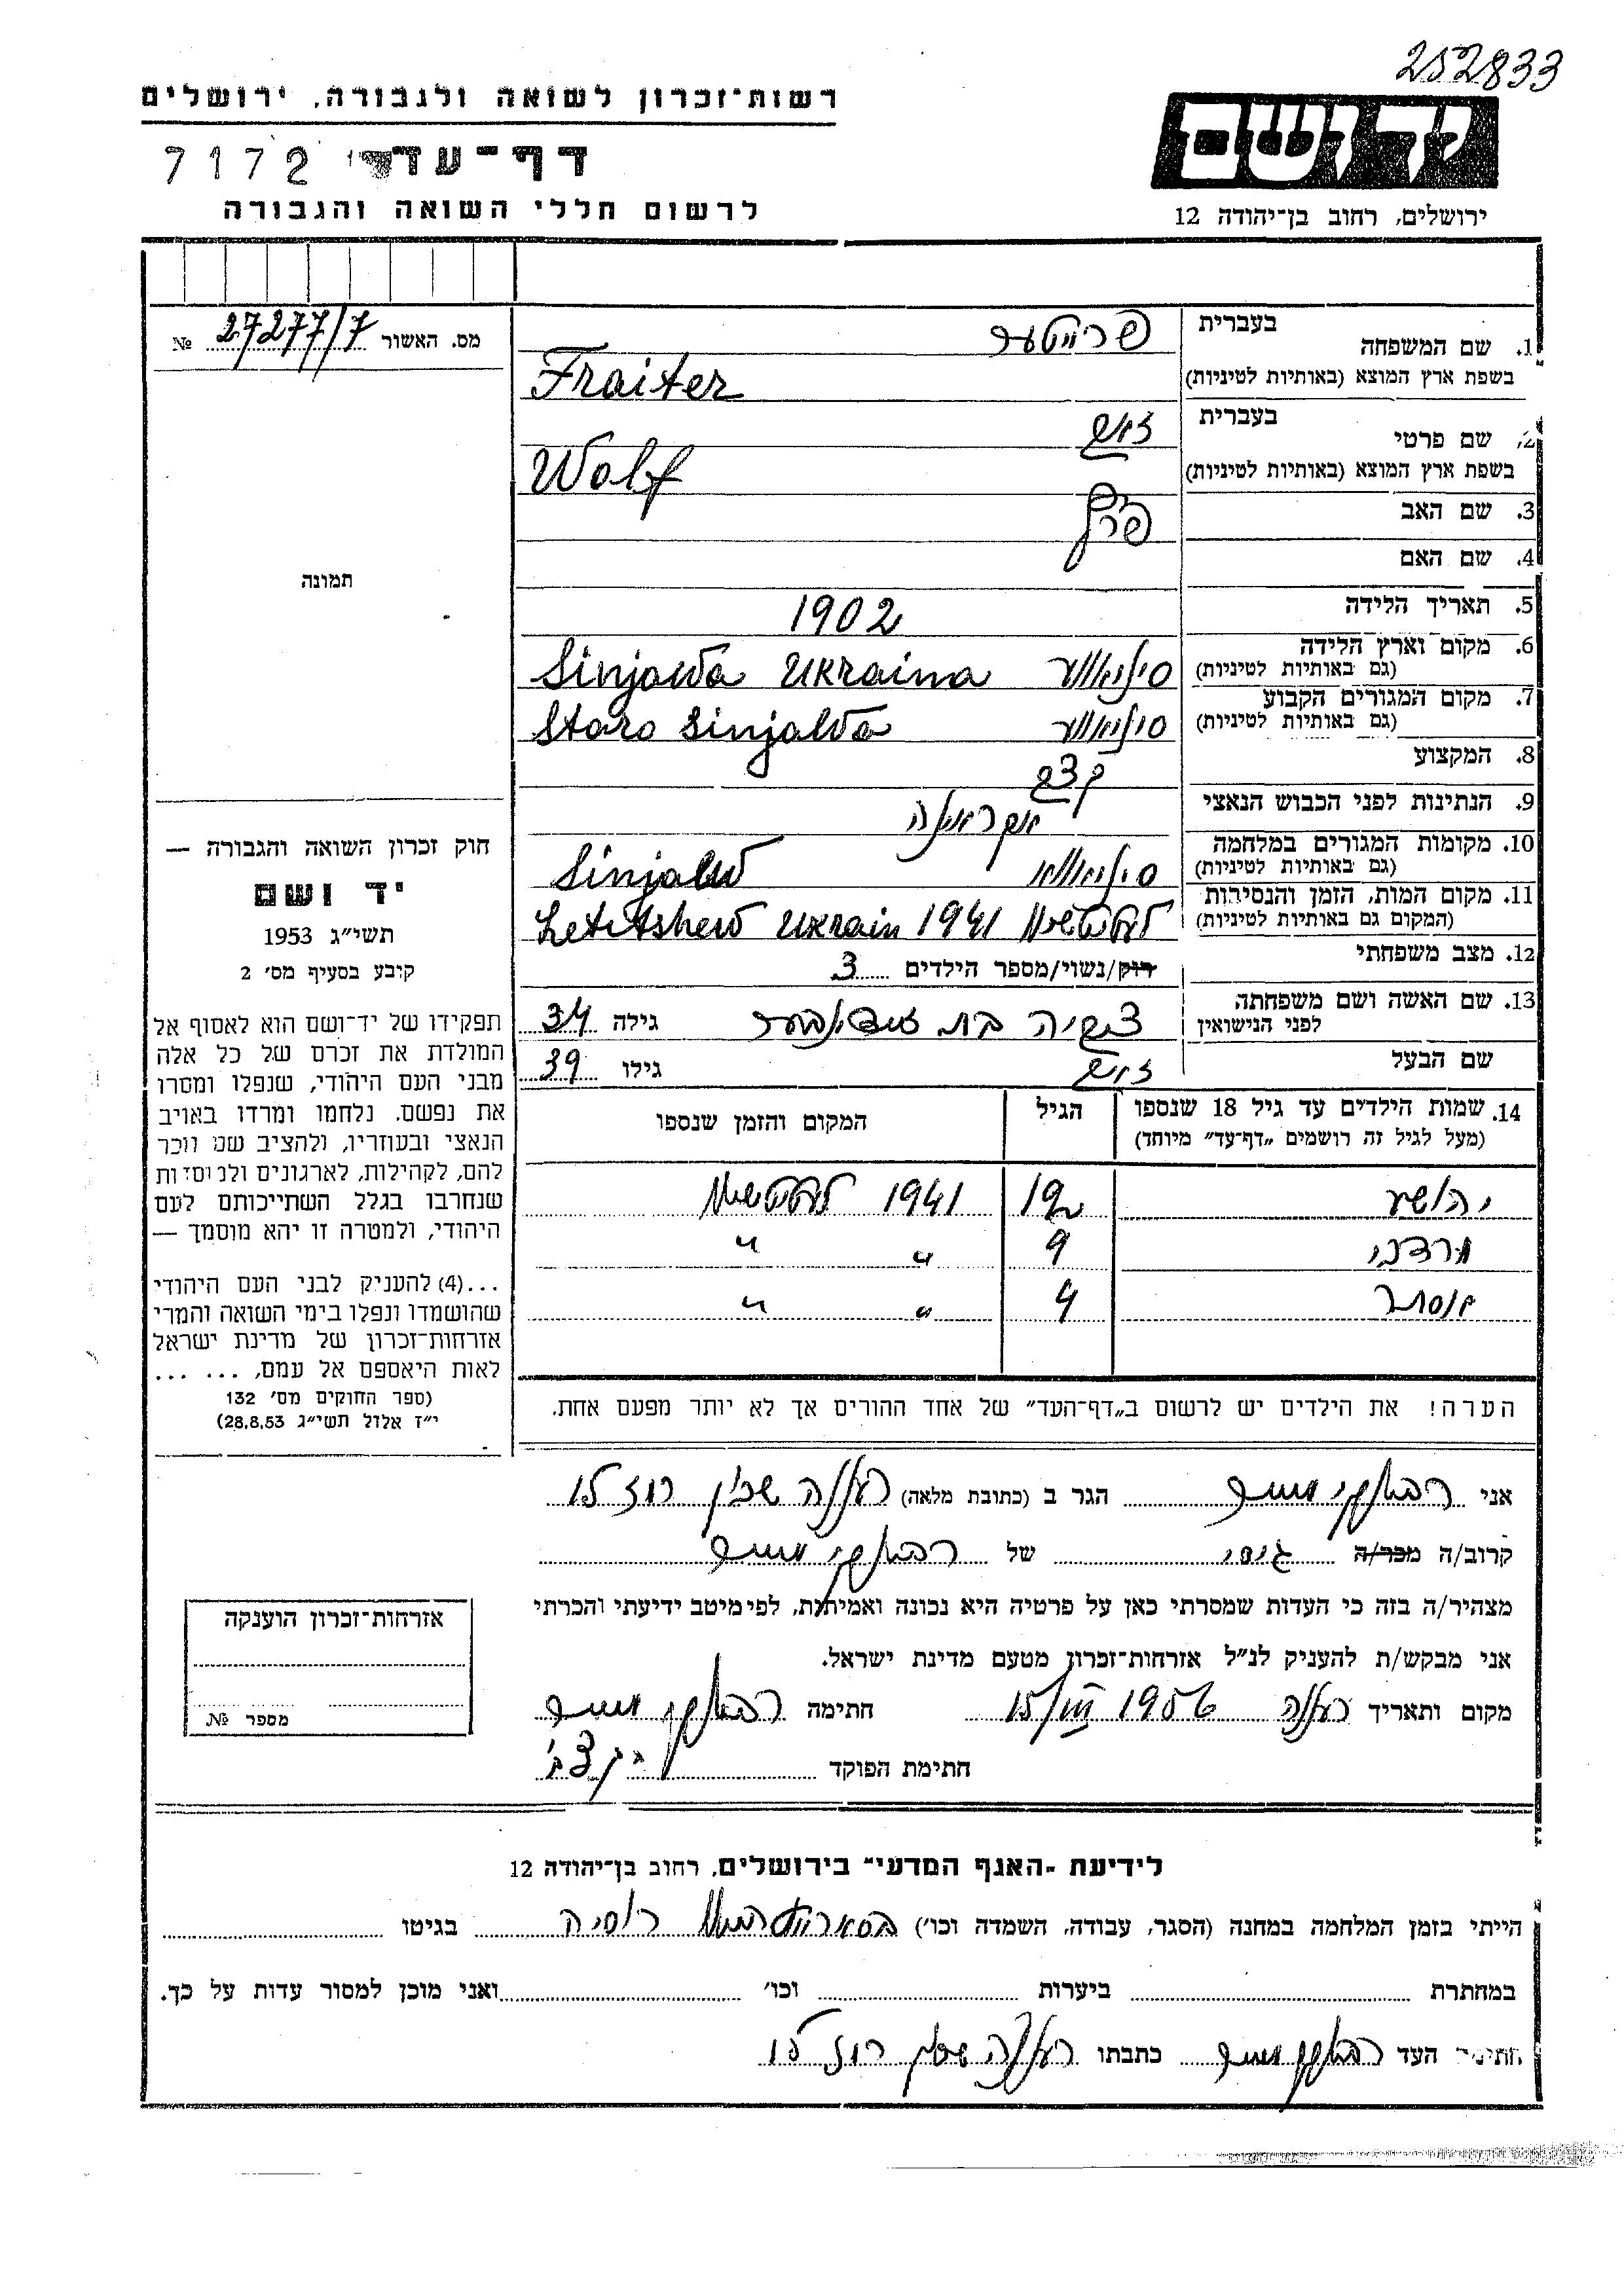 252833
רשות־זכרון לשואה ולגבורה, ירושלים
יד ושם
דף־עד
7172
לרשום חללי השואה והגבורה
ירושלים, רחוב בן־יהודה 12
מס. האשור 27277/7 №
1. שם המשפחה בעברית פרייטער
בשפת ארץ המוצא (באותיות לטיניות) Fraiter
2. שם פרטי בעברית זאב
בשפת ארץ המוצא (באותיות לטיניות) Wolf
3. שם האב
4. שם האם
5. תאריך הלידה 1902
6. מקום וארץ הלידה Sinjawa Ukraina
(גם באותיות לטיניות)
7. מקום המגורים הקבוע Staro Sinjawa
(גם באותיות לטיניות)
8. המקצוע קצב
9. הנתינות לפני הכבוש הנאצי
10. מקומות המגורים במלחמה Sinjaw
(גם באותיות לטיניות)
11. מקום המות, הזמן והנסיבות Letitshew Ukrain 1941
(המקום גם באותיות לטיניות)
12. מצב משפחתי רוק/נשוי/מספר הילדים 3
13. שם האשה ושם משפחתה לפני הנישואין צביה בת גילה 34
שם הבעל זאב גילו 39
14. שמות הילדים עד גיל 18 שנספו הגיל המקום והזמן שנספו
(מעל לגיל זה רושמים „דף־עד” מיוחד)
יהושע 12 1941
מרדכי 9 " "
אסתר 4 " "
הערה! את הילדים יש לרשום ב„דף־העד” של אחד ההורים אך לא יותר מפעם אחת.
תמונה
חוק זכרון השואה והגבורה —
יד ושם
תשי״ג 1953
קובע בסעיף מס׳ 2
תפקידו של יד־ושם הוא לאסוף אל
המולדת את זכרם של כל אלה
מבני העם היהודי, שנפלו ומסרו
את נפשם. נלחמו ומרדו באויב
הנאצי ובעוזריו, ולהציב שם וזכר
להם, לקהילות, לארגונים ולמוסדות
שנחרבו בגלל השתייכותם לעם
היהודי, ולמטרה זו יהא מוסמך —
...(4) להעניק לבני העם היהודי
שהושמדו ונפלו בימי השואה והמרי
אזרחות־זכרון של מדינת ישראל
לאות היאספם אל עמם, ... ...
(ספר החוקים מס׳ 132
י״ז אלול תשי״ג 28.8.53)
אני הגר ב (כתובת מלאה) רעננה שכון
קרוב/ה מכר/ה גיסי של
מצהיר/ה בזה כי העדות שמסרתי כאן על פרטיה היא נכונה ואמיתית, לפי מיטב ידיעתי והכרתי
אני מבקש/ת להעניק לנ״ל אזרחות־זכרון מטעם מדינת ישראל.
מקום ותאריך רעננה 15/VIII 1956 חתימה
חתימת הפוקד
אזרחות־זכרון הוענקה
מספר №
לידיעת „האגף המדעי” בירושלים, רחוב בן־יהודה 12
הייתי בזמן המלחמה במחנה (הסגר, עבודה, השמדה וכו׳) רוסיה בגיטו
במחתרת ביערות וכו׳ ואני מוכן למסור עדות על כך.
חתימת העד כתבתו רעננה שכון